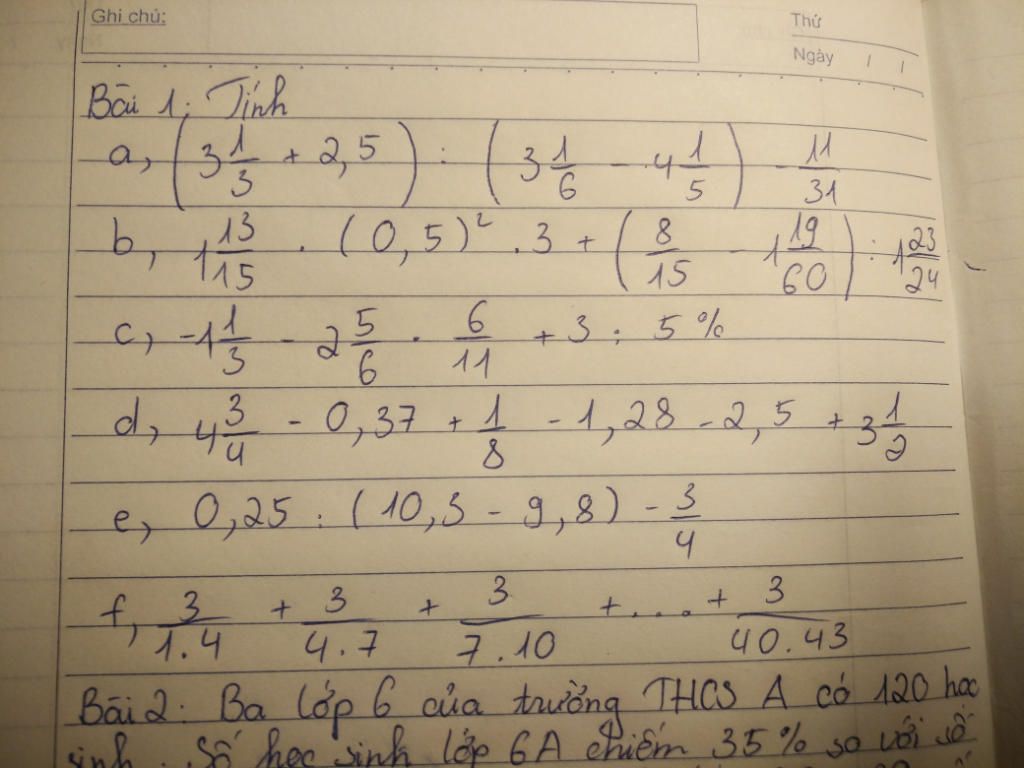 Ghi chú:
Thứ
Ngày / /
Bài 1: Tính
a, (3 1/3 + 2,5) : (3 1/6 - 4 1/5) - 11/31
b, 1 13/15 . (0,5)² . 3 + (8/15 - 1 19/60) : 1 23/24
c, -1 1/3 - 2 5/6 . 6/11 + 3 : 5%
d, 4 3/4 - 0,37 + 1/8 - 1,28 - 2,5 + 3 1/2
e, 0,25 : (10,3 - 9,8) - 3/4
f, 3/1.4 + 3/4.7 + 3/7.10 + .... + 3/40.43
Bài 2: Ba lớp 6 của trường THCS A có 120 học
sinh. Số học sinh lớp 6A chiếm 35% so với số